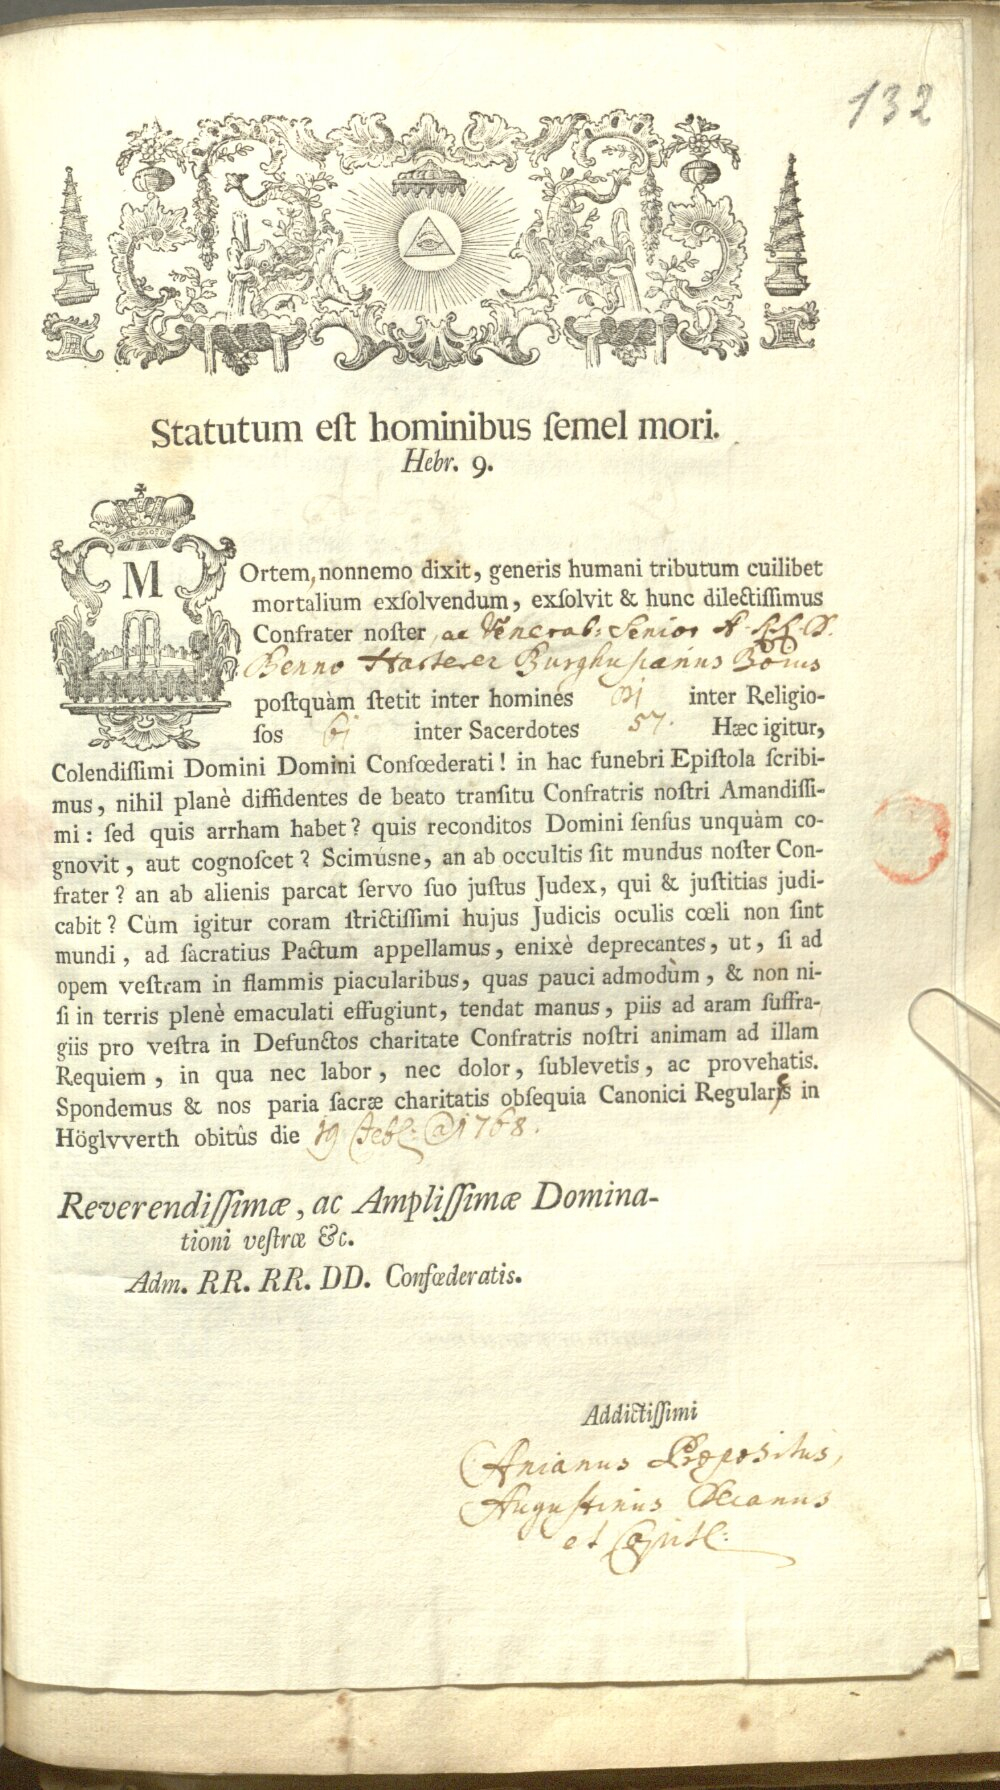 132
Statutum eſt hominibus ſemel mori.
Hebr. 9.
MOrtem, nonnemo dixit, generis humani tributum cuilibet
mortalium exſolvendum, exſolvit & hunc dilectiſſimus
Confrater noſter, ac Venerab: Senior
Benno Harterer Burghusianus Boius
poſtquàm ſtetit inter homines inter Religio-
ſos 61 inter Sacerdotes 57. Hæc igitur,
Colendiſſimi Domini Domini Confœderati! in hac funebri Epiſtola ſcribi-
mus, nihil planè diffidentes de beato tranſitu Confratris noſtri Amandiſſi-
mi: ſed quis arrham habet? quis reconditos Domini ſenſus unquàm co-
gnovit, aut cognoſcet? Scimusne, an ab occultis ſit mundus noſter Con-
frater? an ab alienis parcat ſervo ſuo juſtus Judex, qui & juſtitias judi-
cabit? Cùm igitur coram ſtrictiſſimi hujus Judicis oculis cœli non ſint
mundi, ad ſacratius Pactum appellamus, enixè deprecantes, ut, ſi ad
opem veſtram in flammis piacularibus, quas pauci admodùm, & non ni-
ſi in terris plenè emaculati effugiunt, tendat manus, piis ad aram ſuffra-
giis pro veſtra in Defunctos charitate Confratris noſtri animam ad illam
Requiem, in qua nec labor, nec dolor, ſublevetis, ac provehatis.
Spondemus & nos paria ſacræ charitatis obſequia Canonici Regulares in
Höglvverth obitûs die 19 Feb: @ 1768.
Reverendiſſimæ, ac Ampliſſimæ Domina-
tioni veſtræ &c.
Adm. RR. RR. DD. Confœderatis.
Addictiſſimi
Anianus Præpositus,
Augustinus Decanus
et Capitl: